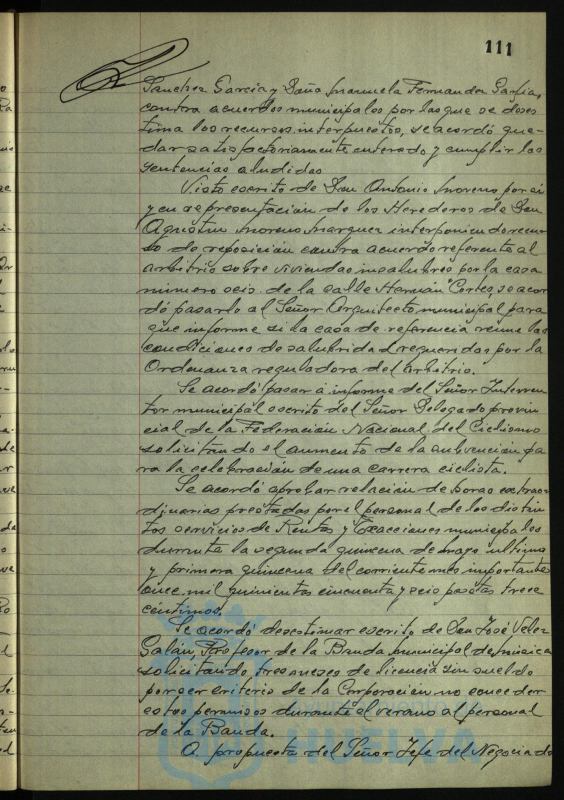 111
Sanchez Garcia y Doña Manuela Fernandez
contra acuerdos municipales por las que se deses
tima los recursos interpuestos, se acordó que-
dar satisfactoriamente enterado y cumplir las
sentencias aludidas
Visto escrito de Don Antonio Moreno por si
y en representación de los Herederos de Don
Agustin Moreno Marquez interponiendo recur
so de reposición contra acuerdo referente al
arbitrio sobre viviendas insalubres por la casa
número seis de la calle Hernán Cortes se acor
dó pasarlo al Señor Arquitecto municipal para
que informe si la casa de referencia reune las
condiciones de salubridad requeridas por la
Ordenanza reguladora del arbitrio.
Se acordó pasar a informe del Señor Interven
tor municipal escrito del Señor Delegado provin
cial de la Federación Nacional del Ciclismo
solicitando el aumento de la subvención pa
ra la celebración de una carrera ciclista.
Se acordó aprobar relación de horas extraor
dinarias prestadas por el personal de los distin
tos servicios de Rentas y Exacciones municipales
durante la segunda quincena de Mayo ultimo
y primera quincena del corriente mes importante
once mil quinientas cincuenta y seis pesetas trece
centimos.
Se acordó desestimar escrito de Don José Velez
Galán, Profesor de la Banda municipal de música
solicitando tres meses de licencia sin sueldo
por ser criterio de la Corporación no conceder
estos permisos durante el verano al personal
de la Banda.
A propuesta del Señor Jefe del Negociado
HUELVA